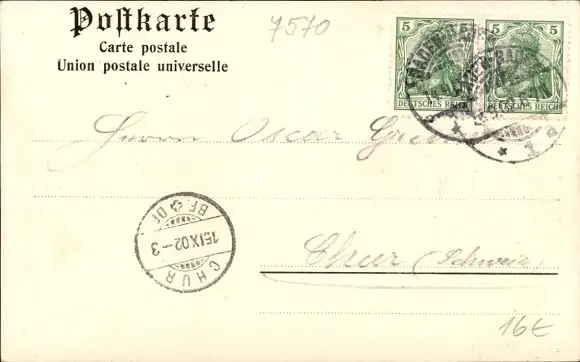 Postkarte
Carte postale
Union postale universelle
7570
5 5
5 5
DEUTSCHES REICH
DEUTSCHES REICH
Herrn Oscar
CHUR
15.IX.02-3
BF. DF
Chur (Schweiz)
16€